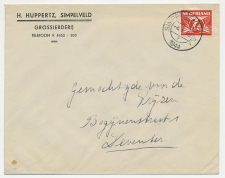 H. HUPPERTZ, SIMPELVELD
GROSSIERDERIJ
TELEFOON K 4453 - 305
NEDERLAND
7½
Gemachtigde van de
Wijzen
Begijnenstraat
Deventer